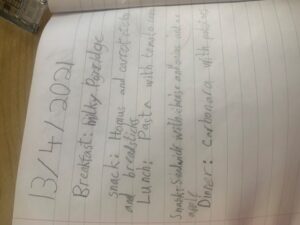 13/4/2021
Breakfast: Milky Porridge
snack: Homus and carrot sticks
and breadsticks
Lunch: Pasta with tomato
Snack: Sandwich with cheese and
apple
Dinner: Carbonara with